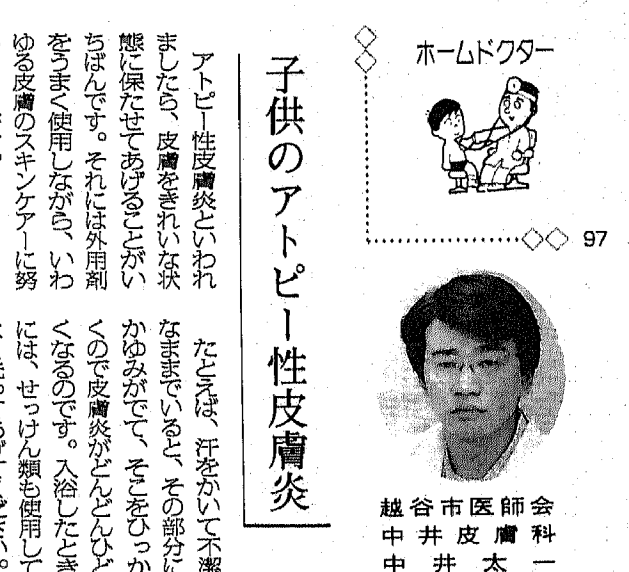 ホームドクター
97
越谷市医師会
中井皮膚科
中井太一
子供のアトピー性皮膚炎
アトピー性皮膚炎といわれ
ましたら、皮膚をきれいな状
態に保たせてあげることがい
ちばんです。それには外用剤
をうまく使用しながら、いわ
ゆる皮膚のスキンケアーに努
たとえば、汗をかいて不潔
なままでいると、その部分に
かゆみがでて、そこをひっか
くので皮膚炎がどんどんひど
くなるのです。入浴したとき
には、せっけん類も使用して